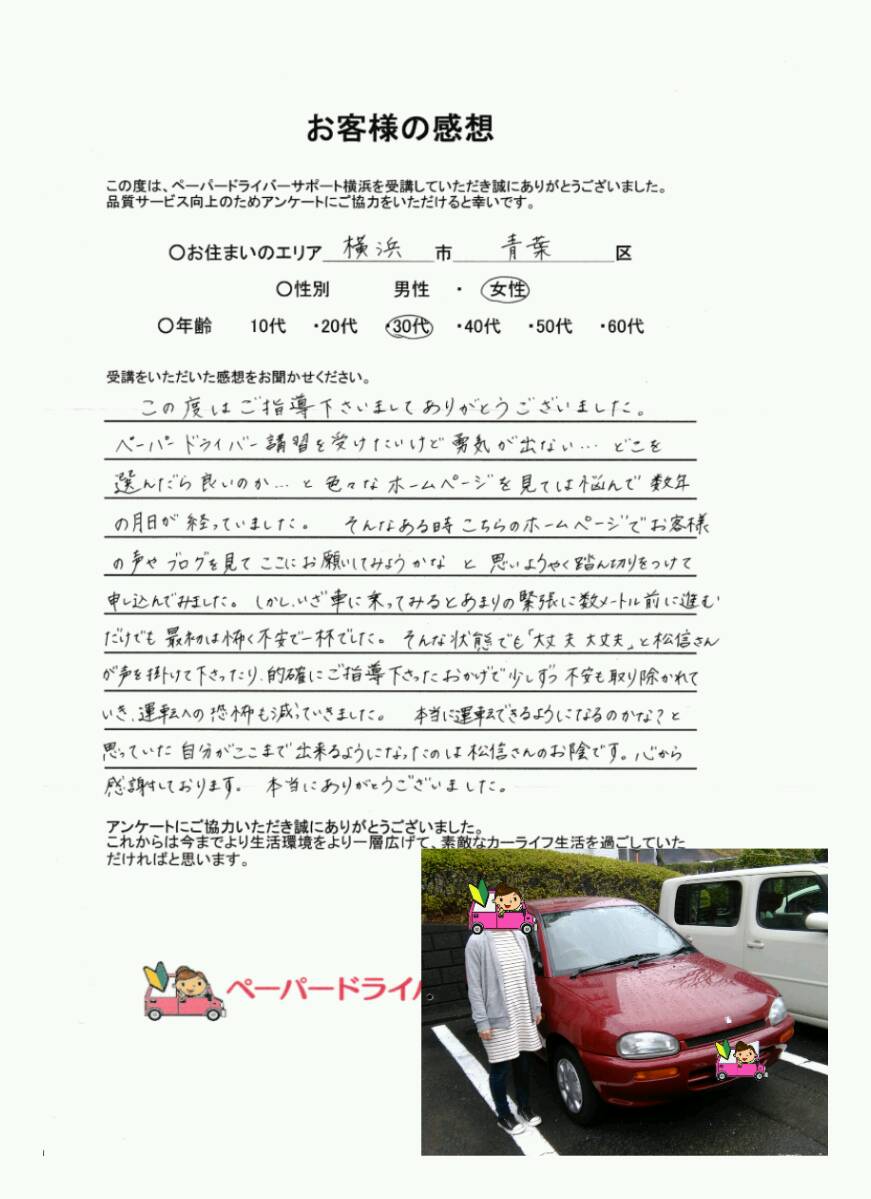 お客様の感想
この度は、ペーパードライバーサポート横浜を受講していただき誠にありがとうございました。
品質サービス向上のためアンケートにご協力をいただけると幸いです。
○お住まいのエリア 横浜 市 青葉 区
○性別 男性 ・ 女性
○年齢 10代 ・20代 ・30代 ・40代 ・50代 ・60代
受講をいただいた感想をお聞かせください。
この度はご指導下さいましてありがとうございました。
ペーパードライバー講習を受けたいけど勇気が出ない… どこを
選んだら良いのか… と色々なホームページを見ては悩んで数年
の月日が経っていました。 そんなある時こちらのホームページでお客様
の声やブログを見てここにお願いしてみようかな と 思いようやく踏ん切りをつけて
申し込んでみました。しかし、いざ車に乗ってみるとあまりの緊張に数メートル前に進む
だけでも最初は怖く不安で一杯でした。そんな状態でも「大丈夫大丈夫」と松信さん
が声を掛けて下さったり、的確にご指導下さったおかげで少しずつ不安も取り除かれて
いき、運転への恐怖も減っていきました。 本当に運転できるようになるのかな?と
思っていた自分がここまで出来るようになったのは松信さんのお陰です。心から
感謝しております。 本当にありがとうございました。
アンケートにご協力いただき誠にありがとうございました。
これからは今までより生活環境をより一層広げて、素敵なカーライフ生活を過ごしていた
だければと思います。
ペーパードライ